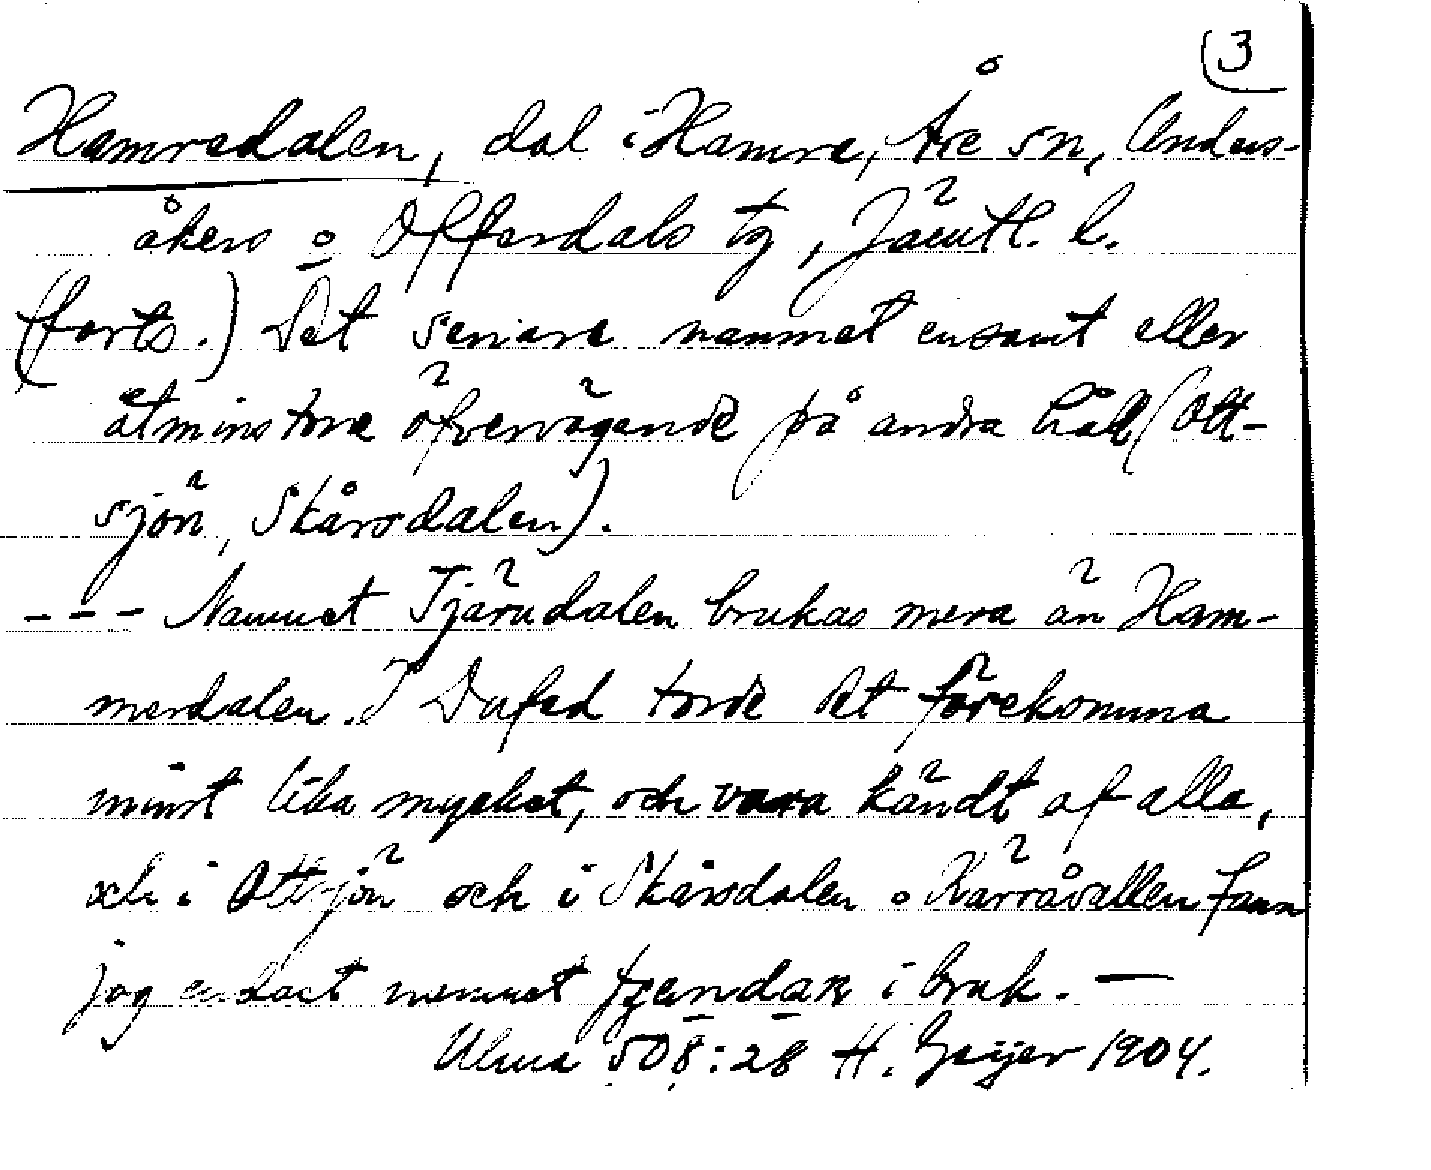 (3
Hamredalen, dal i Hamre, Åre sn, Unders-
åkers o Offerdals tg, Jämtl. l.
(forts.) Det senare namnet ensamt eller
åtminstone öfvervägande på andra håll (Ott-
sjön, Skårsdalen).
--- Namnet Tjärudalen brukas mera än Ham-
merdalen. I Dufed torde det förekomma
minst lika mycket, och vara kändt af alla,
och i Ottsjön och i Skårsdalen o Kärråvallen fann
jag endast namnet i bruk. —
Ulma 508:28 H. Geijer 1904.